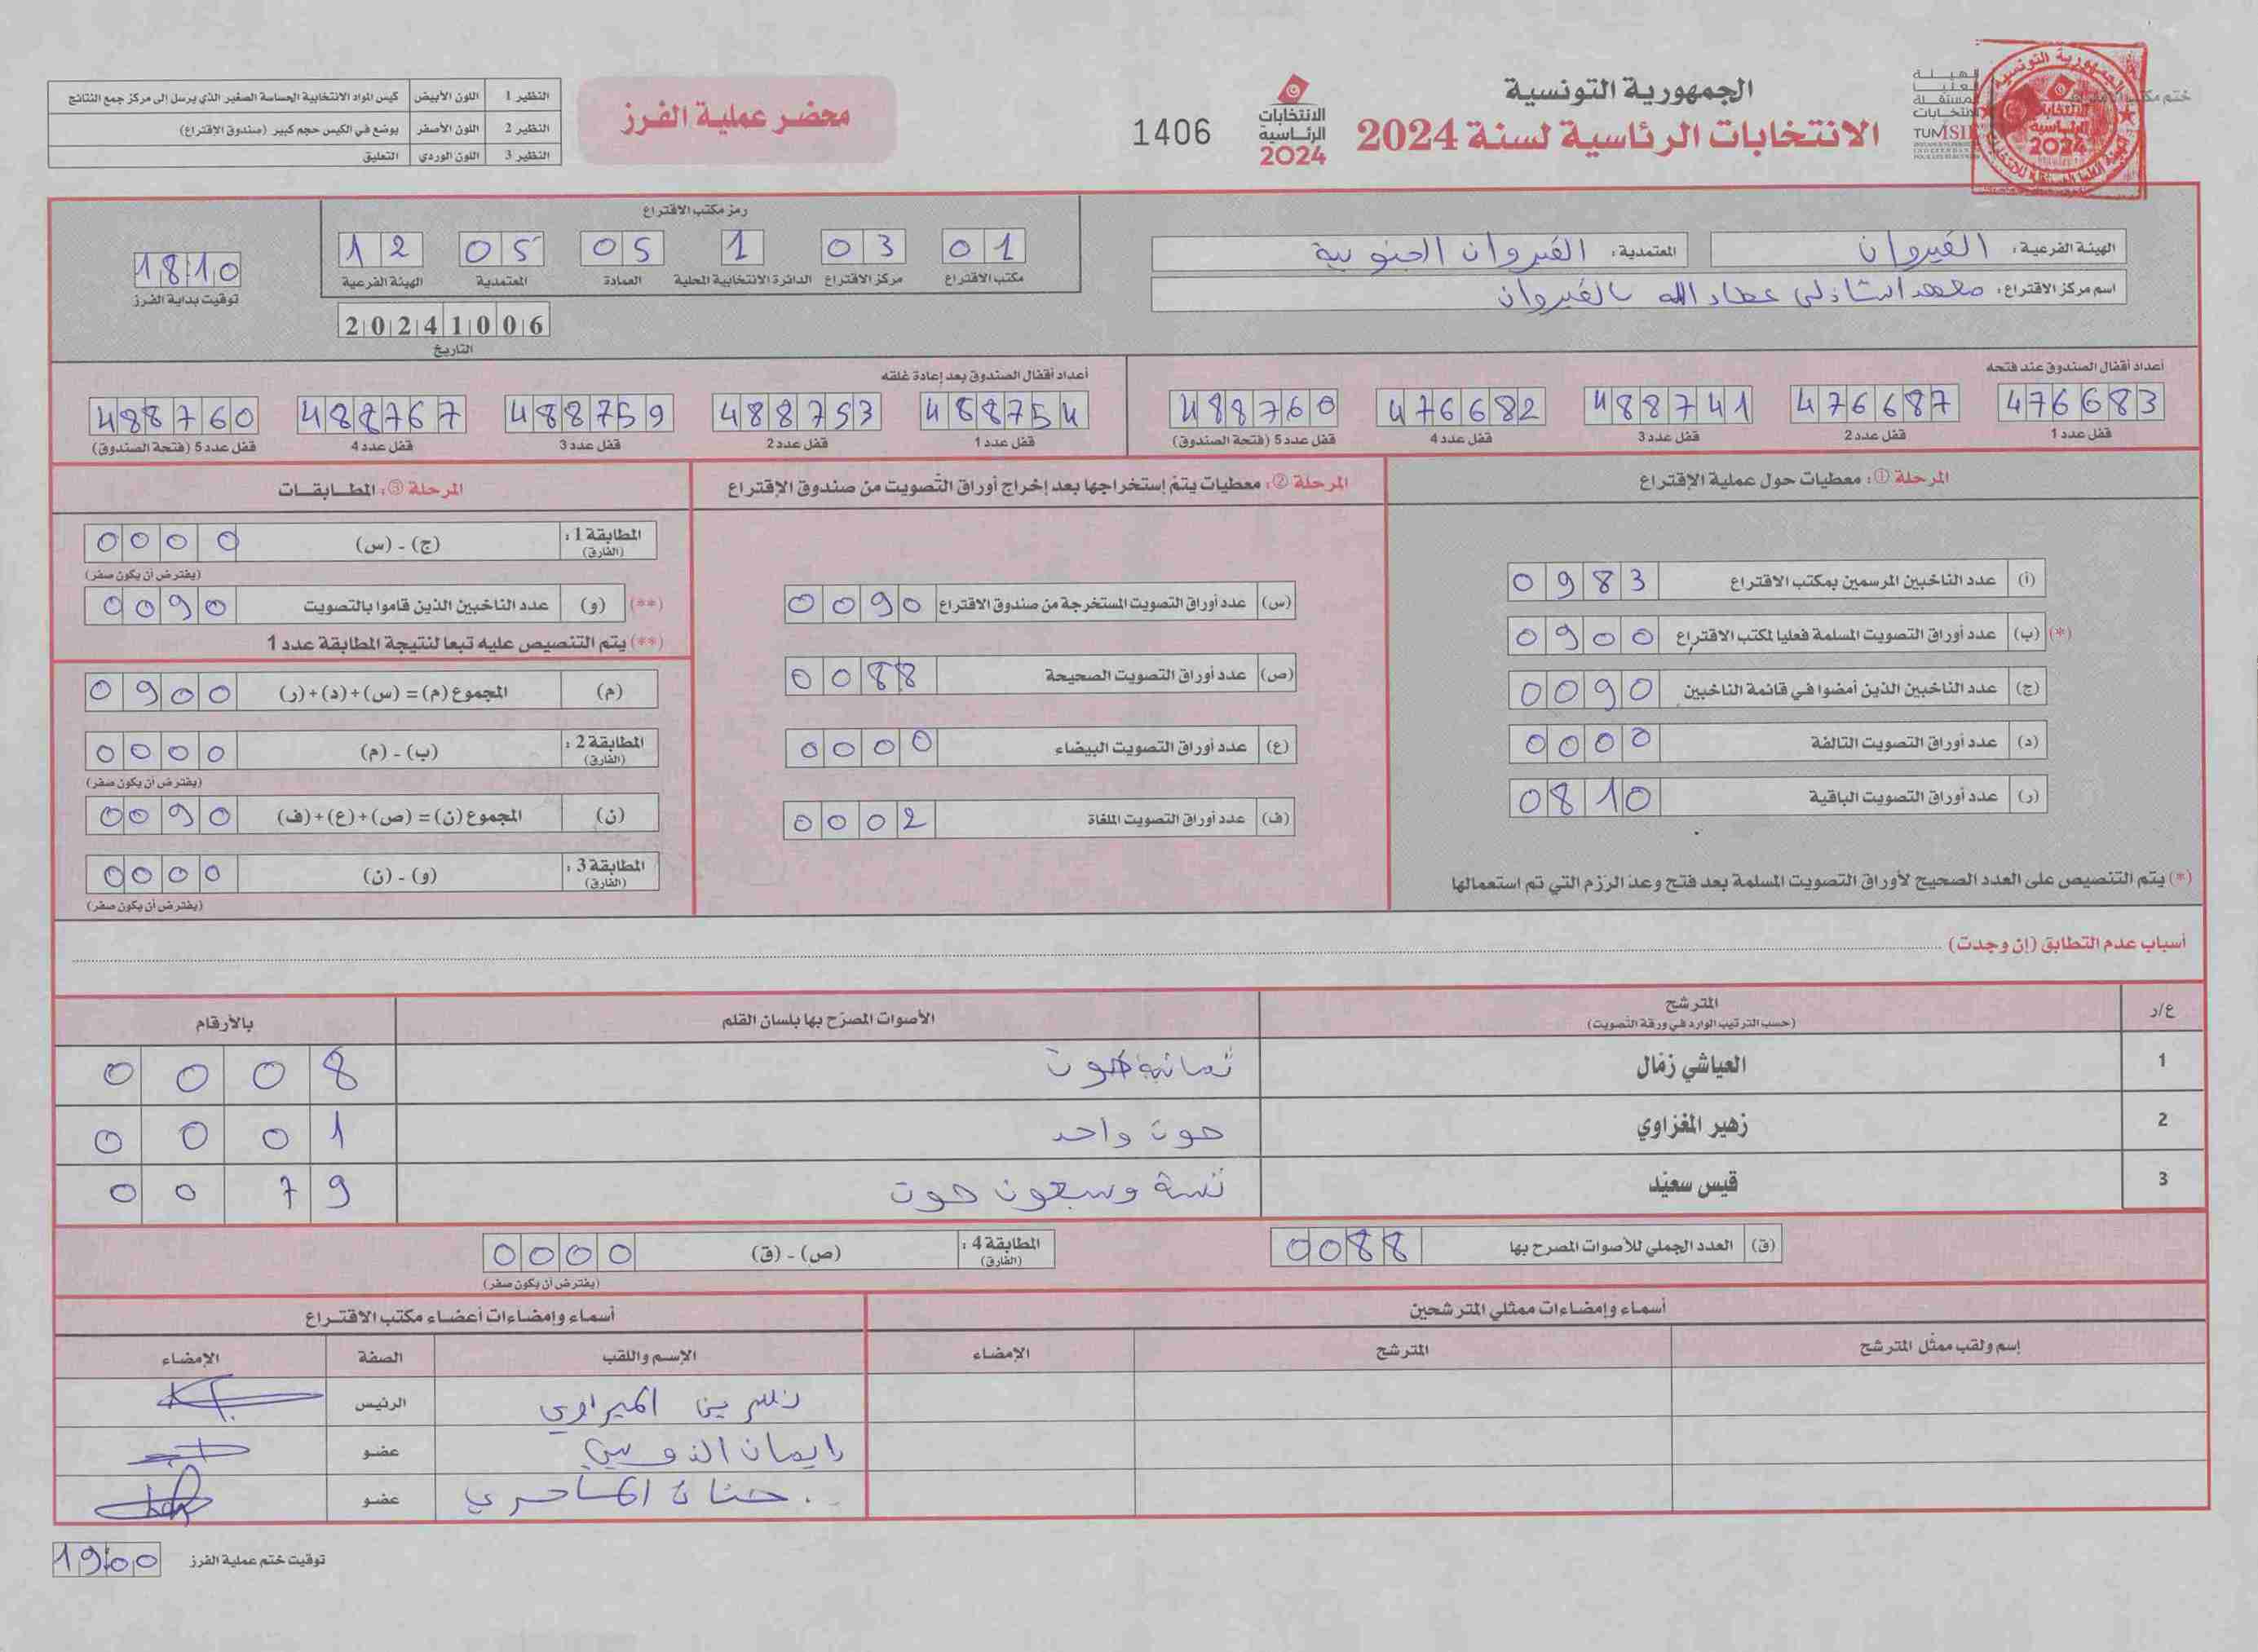 الجمهورية التونسية
الانتخابات الرئاسية لسنة 2024
الانتخابات
الرئاسية
2024
1406
محضر عملية الفرز
النظير 1 اللون الأبيض كيس المواد الانتخابية الحساسة الصغير الذي يرسل الى مركز جمع النتائج
النظير 2 اللون الأصفر يوضع في الكيس حجم كبير (صندوق الإقتراع)
النظير 3 اللون الوردي التعليق
الهيئة الفرعية: القيروان
المعتمدية: القيروان الجنوبية
اسم مركز الاقتراع: معهد الشاذلي عطاء الله بالقيروان
رمز مكتب الاقتراع
01 مكتب الاقتراع
03 مركز الاقتراع
1 الدائرة الانتخابية المحلية
05 العمادة
05 المعتمدية
12 الهيئة الفرعية
20241006
التاريخ
18:10
توقيت بداية الفرز
أعداد أقفال الصندوق عند فتحه
476683 قفل عدد 1
476687 قفل عدد 2
488741 قفل عدد 3
476682 قفل عدد 4
488760 قفل عدد 5 (فتحة الصندوق)
أعداد أقفال الصندوق بعد إعادة غلقه
488754 قفل عدد 1
488753 قفل عدد 2
488759 قفل عدد 3
488767 قفل عدد 4
488760 قفل عدد 5 (فتحة الصندوق)
المرحلة ①: معطيات حول عملية الإقتراع
(أ) عدد الناخبين المرسمين بمكتب الاقتراع 0983
(*) (ب) عدد أوراق التصويت المسلمة فعليا لمكتب الاقتراع 0900
(ج) عدد الناخبين الذين أمضوا في قائمة الناخبين 0090
(د) عدد أوراق التصويت التالفة 0000
(ر) عدد أوراق التصويت الباقية 0810
(*) يتم التنصيص على العدد الصحيح لأوراق التصويت المسلمة بعد فتح وعد الرزم التي تم استعمالها
المرحلة ②: معطيات يتم إستخراجها بعد إخراج أوراق التصويت من صندوق الإقتراع
(س) عدد أوراق التصويت المستخرجة من صندوق الاقتراع 0090
(ص) عدد أوراق التصويت الصحيحة 0088
(ع) عدد أوراق التصويت البيضاء 0000
(ف) عدد أوراق التصويت الملغاة 0002
المرحلة ③: المطابقات
المطابقة 1: (الفارق) (ج) - (س) 0000
(يفترض أن يكون صفر)
(**) (و) عدد الناخبين الذين قاموا بالتصويت 0090
(**) يتم التنصيص عليه تبعا لنتيجة المطابقة عدد 1
(م) المجموع (م) = (س)+(د)+(ر) 0900
المطابقة 2: (الفارق) (ب) - (م) 0000
(يفترض أن يكون صفر)
(ن) المجموع (ن) = (ص)+(ع)+(ف) 0090
المطابقة 3: (الفارق) (و) - (ن) 0000
(يفترض أن يكون صفر)
أسباب عدم التطابق (إن وجدت)
ع/ر المترشح (حسب الترتيب الوارد في ورقة التصويت) الأصوات المصرّح بها بلسان القلم بالأرقام
1 العياشي زمّال ثمانية صوت 0008
2 زهير المغزاوي صوت واحد 0001
3 قيس سعيّد تسة وسبعون صوت 0079
(ق) العدد الجملي للأصوات المصرح بها 0088
المطابقة 4: (الفارق) (ص) - (ق) 0000
(يفترض أن يكون صفر)
أسماء وإمضاءات ممثلي المترشحين
إسم ولقب ممثل المترشح المترشح الإمضاء
أسماء وإمضاءات أعضاء مكتب الاقتراع
الإسم واللقب الصفة الإمضاء
نسرين الرئيس
إيمان عضو
حنان عضو
توقيت ختم عملية الفرز 19:00